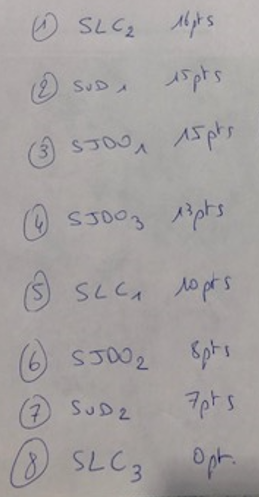 ① SLC2 16pts
② SUD1 15pts
③ SJDO1 15pts
④ SJDO3 13pts
⑤ SLC1 10pts
⑥ SJDO2 8pts
⑦ SUD2 7pts
⑧ SLC3 0pt.